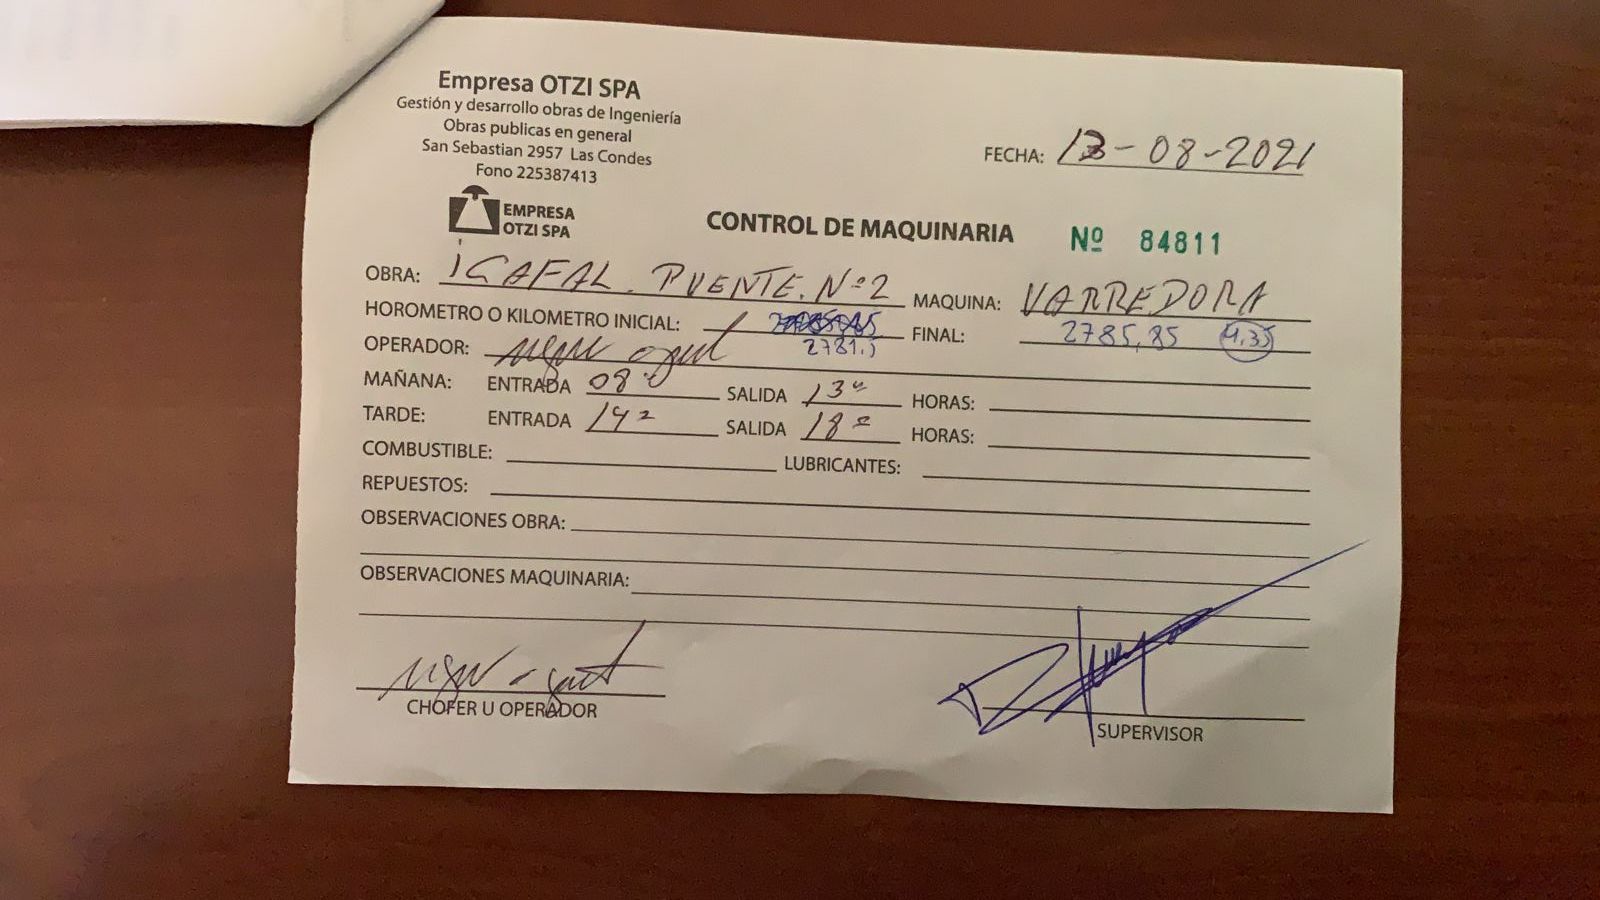 Empresa OTZI SPA
Gestión y desarrollo obras de Ingeniería
Obras publicas en general
San Sebastian 2957 Las Condes
Fono 225387413
EMPRESA
OTZI SPA
FECHA: 13-08-2021
CONTROL DE MAQUINARIA Nº 84811
OBRA: IGAFAL. PUENTE. Nº2 MAQUINA: VARREDORA
HOROMETRO O KILOMETRO INICIAL: 2781.5 FINAL: 2785,85 4,35
OPERADOR:
MAÑANA: ENTRADA 08 SALIDA 13 HORAS:
TARDE: ENTRADA 14 SALIDA 18 HORAS:
COMBUSTIBLE: LUBRICANTES:
REPUESTOS:
OBSERVACIONES OBRA:
OBSERVACIONES MAQUINARIA:
CHOFER U OPERADOR
SUPERVISOR